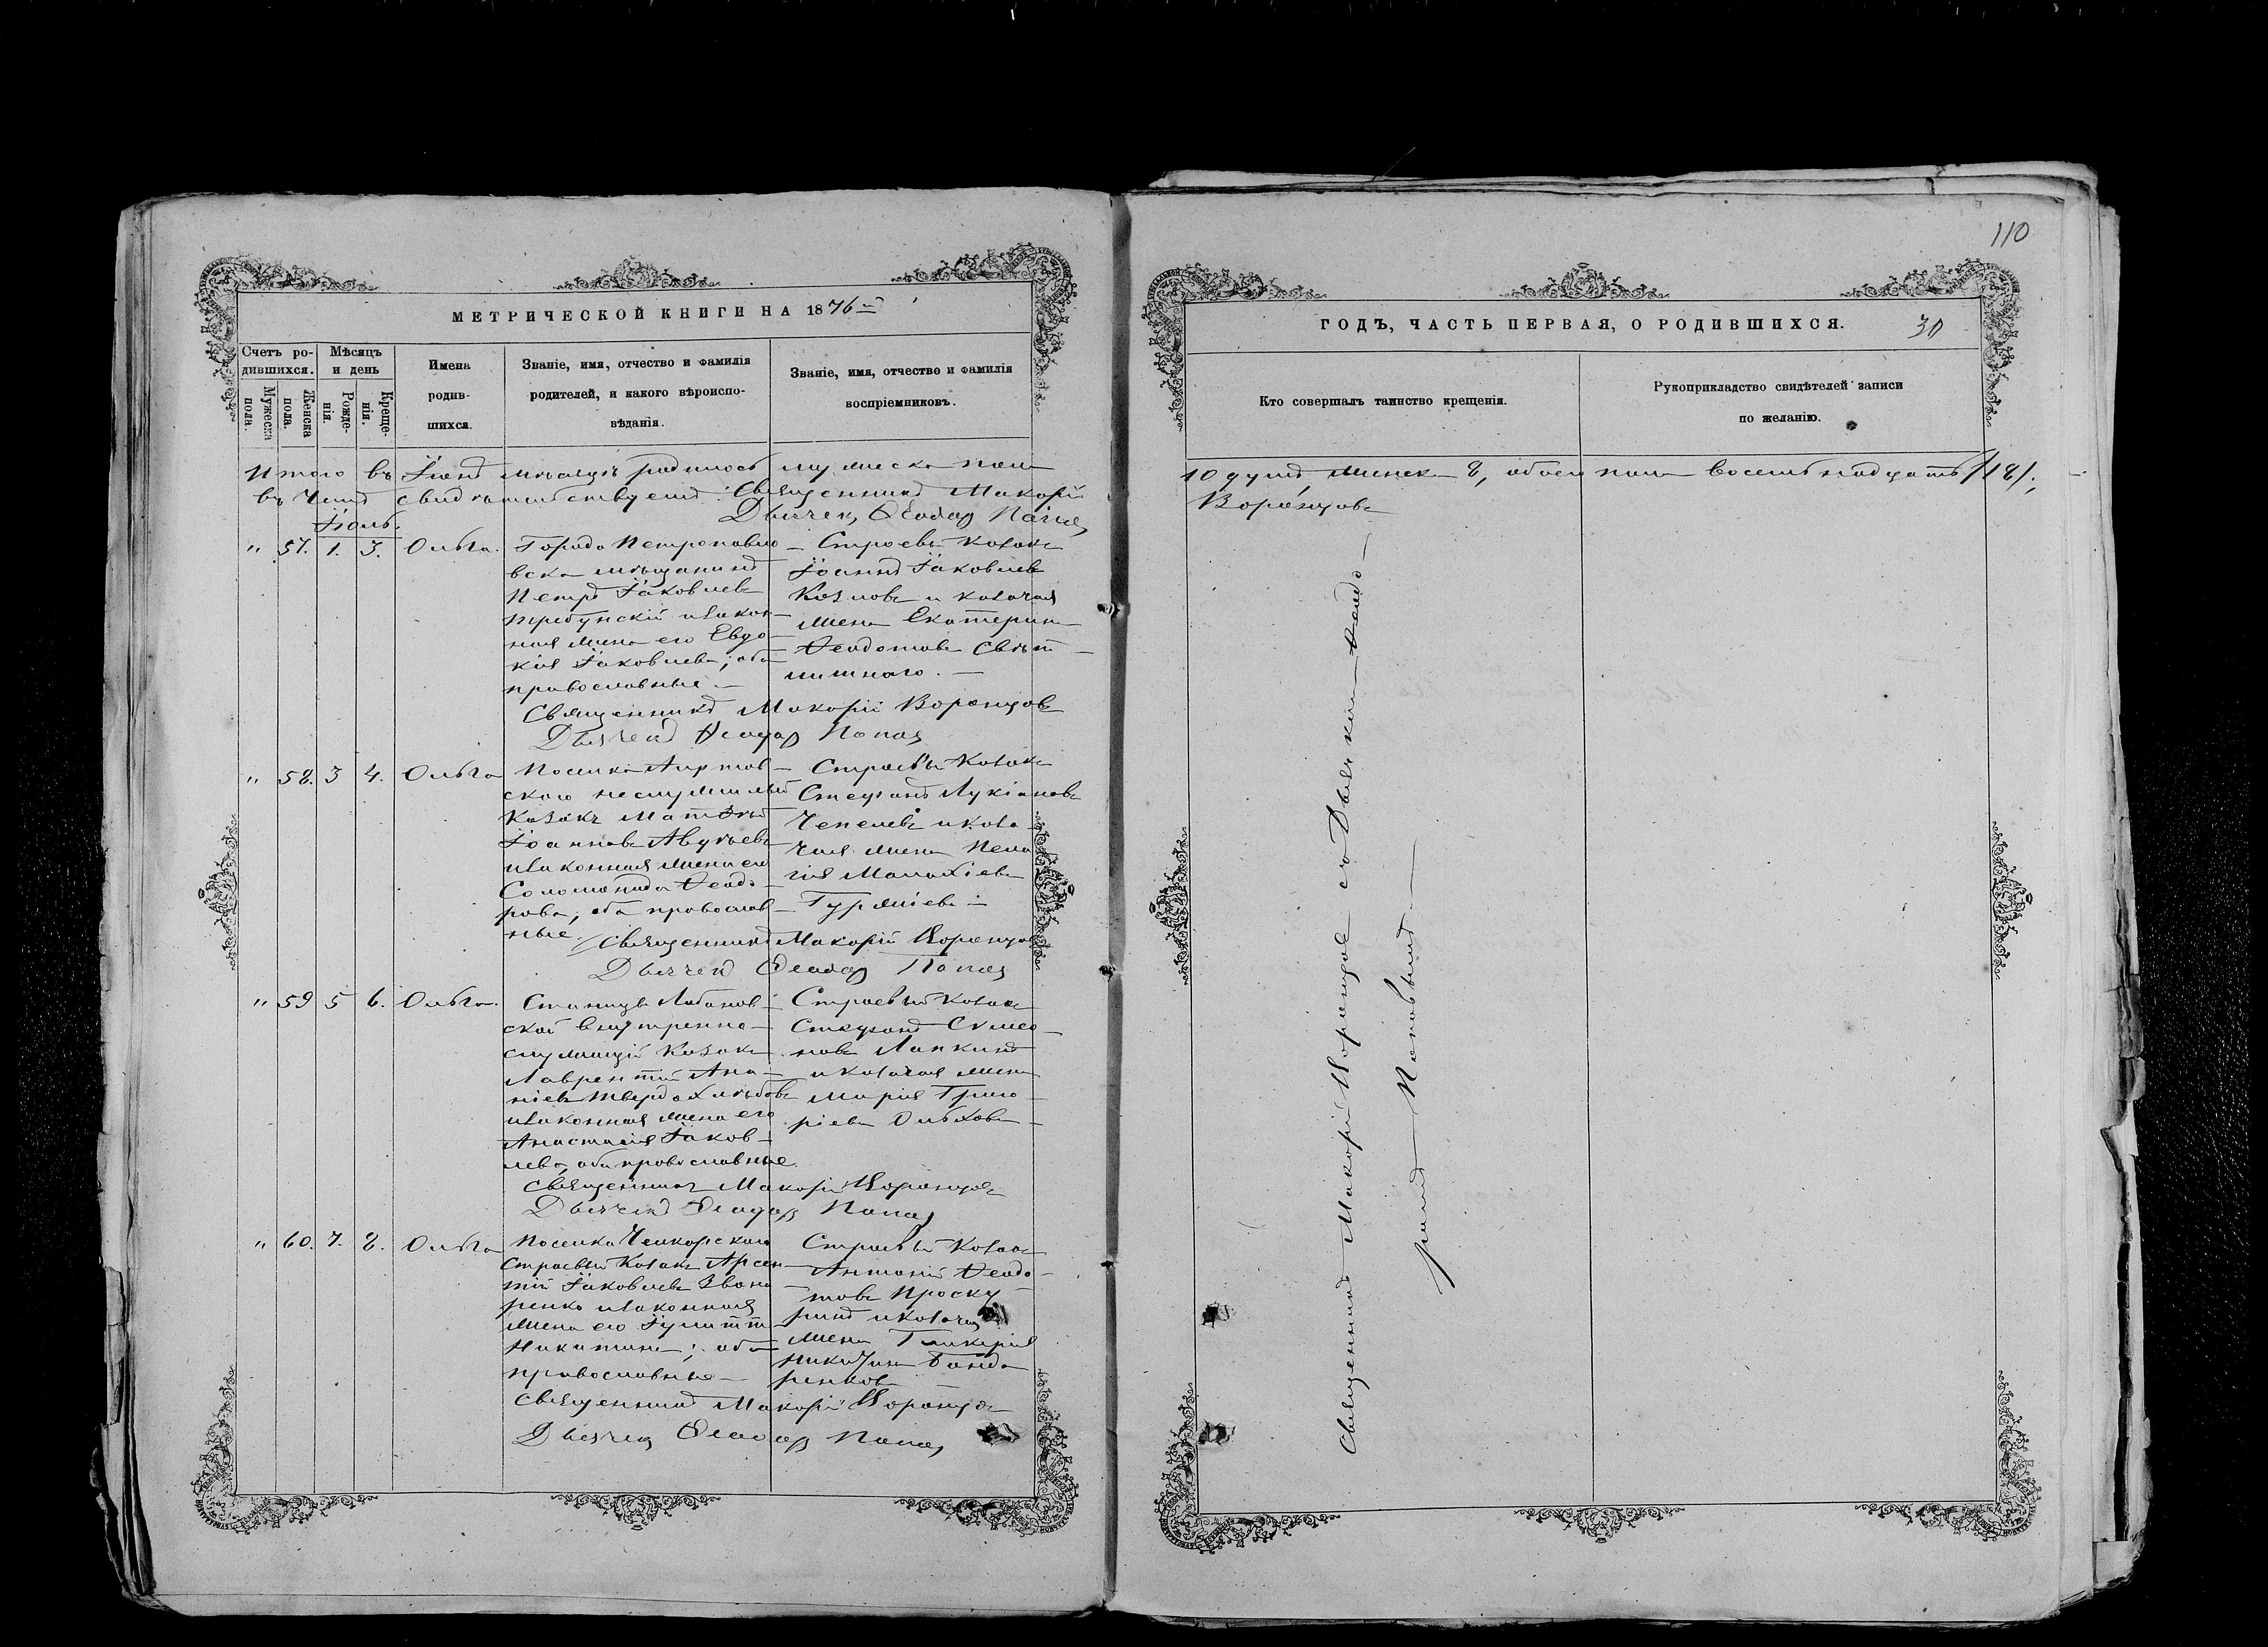 110
МЕТРИЧЕСКОЙ КНИГИ НА 1876
ГОДЪ, ЧАСТЬ ПЕРВАЯ, О РОДИВШИХСЯ.
30
Счетъ ро-
дившихся.
Мужеска
пола.
Женска
пола.
Мѣсяцъ
и день
Рожде-
нія.
Креще-
нія.
Имена
родив-
шихся.
Званіе, имя, отчество и фамилія
родителей, и какого вѣроиспо-
вѣданія.
Званіе, имя, отчество и фамилія
воспріемниковъ.
Кто совершалъ таинство крещенія.
Рукоприкладство свидѣтелей записи
по желанію.
Итого въ Іюнѣ мѣсяцѣ родилось мужеска пола
10 душъ, женска 8, обоего пола восемьнадцать /18/;
въ чемъ свидѣтельствуемъ: Священникъ Макорій
Воронцовъ
Дьячекъ Ѳеодоръ Поповъ
Іюль.
" 57. 1. 3. Ольга.
Города Петропавло-
вска мѣщанинъ
Петръ Іаковлевъ
Требунскій и закон-
ная жена его Евдо-
кія Іаковлева; оба
православные.
Строевый козакъ
Іоаннъ Іаковлевъ
Козловъ и козачая
жена Екатерина
Ѳеодотова
Священникъ Макорій Воронцовъ
Дьячекъ Ѳеодоръ Поповъ
" 58. 3 4. Ольга
Поселка
ского неслужилый
козакъ Матѳей
Іоанновъ Авдѣевъ
и законная жена его
Соломонида Ѳеодо-
рова; оба православ-
ные.
Строевый козакъ
Стефанъ Лукіановъ
Чепелевъ и коза-
чая жена Пела-
гія Малахіева
Священникъ Макорій Воронцовъ
Дьячекъ Ѳеодоръ Поповъ
" 59 5 6. Ольга.
Станицы Лобанов-
ской внутренно-
служащій козакъ
Лаврентій Ана-
ніевъ Твердохлѣбовъ
и законная жена его
Анастасія Іаков-
лева, оба православные.
Строевый козакъ
Стефанъ Сѵмео-
новъ Лапкинъ
и козачая жена
Марія Григо-
ріева Ольхова
Священникъ Макорій Воронцовъ
Дьячекъ Ѳеодоръ Поповъ
" 60. 7. 8. Ольга
Поселка Челкарскаго
строевый козакъ Арсен-
тій Іаковлевъ Звона-
ренко и законная
жена его Іулитта
Никитина; оба
православные
Строевый козакъ
Антоній Ѳеодо-
товъ Проску-
ринъ и козачая
жена Гликерія
Никитина Бонда-
ренкова
Священникъ Макорій Воронцовъ
Дьячекъ Ѳеодоръ Поповъ
Священникъ Макорій Воронцовъ съ Дьячкомъ Ѳеодо-
ромъ Поповымъ